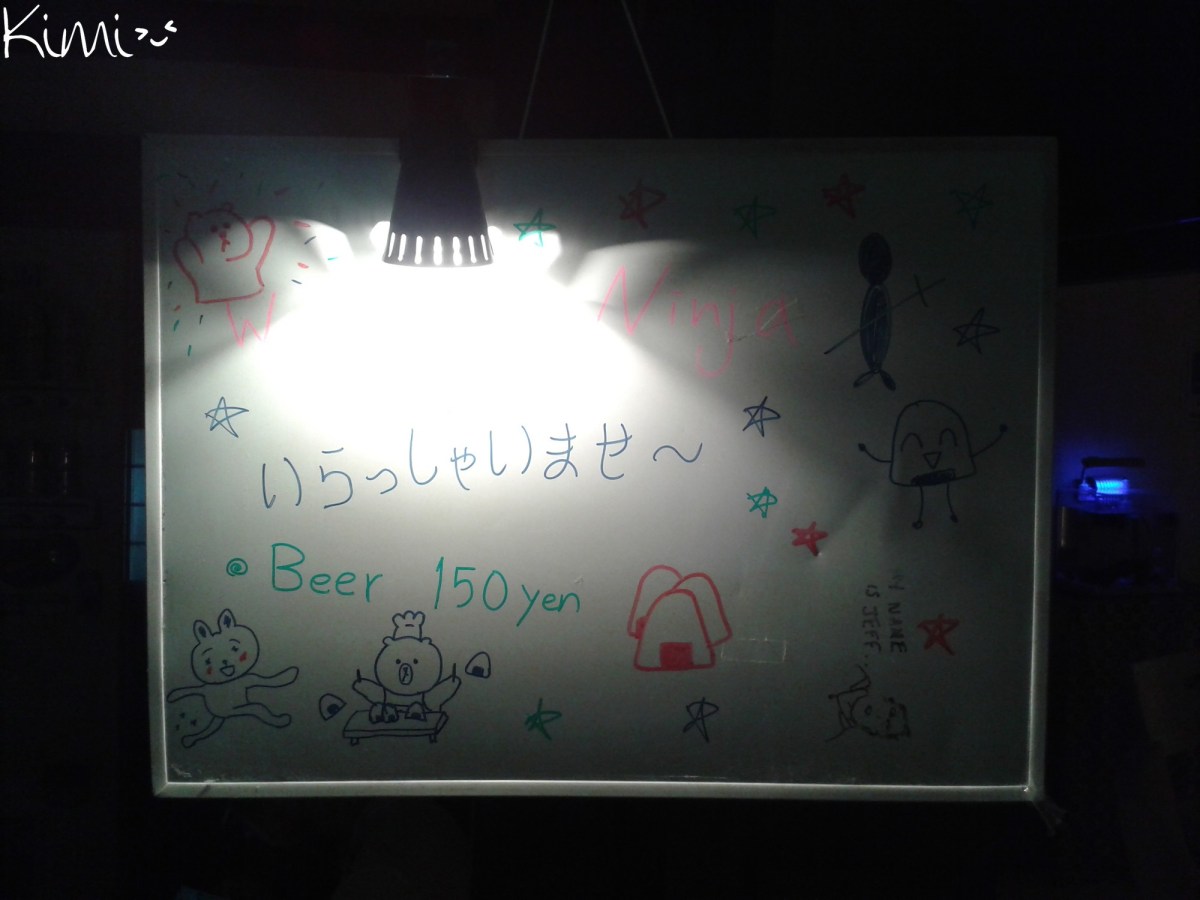 Kimi
W Ninja
いらっしゃいませ～
Beer 150 yen
MY NAME
IS JEFF..